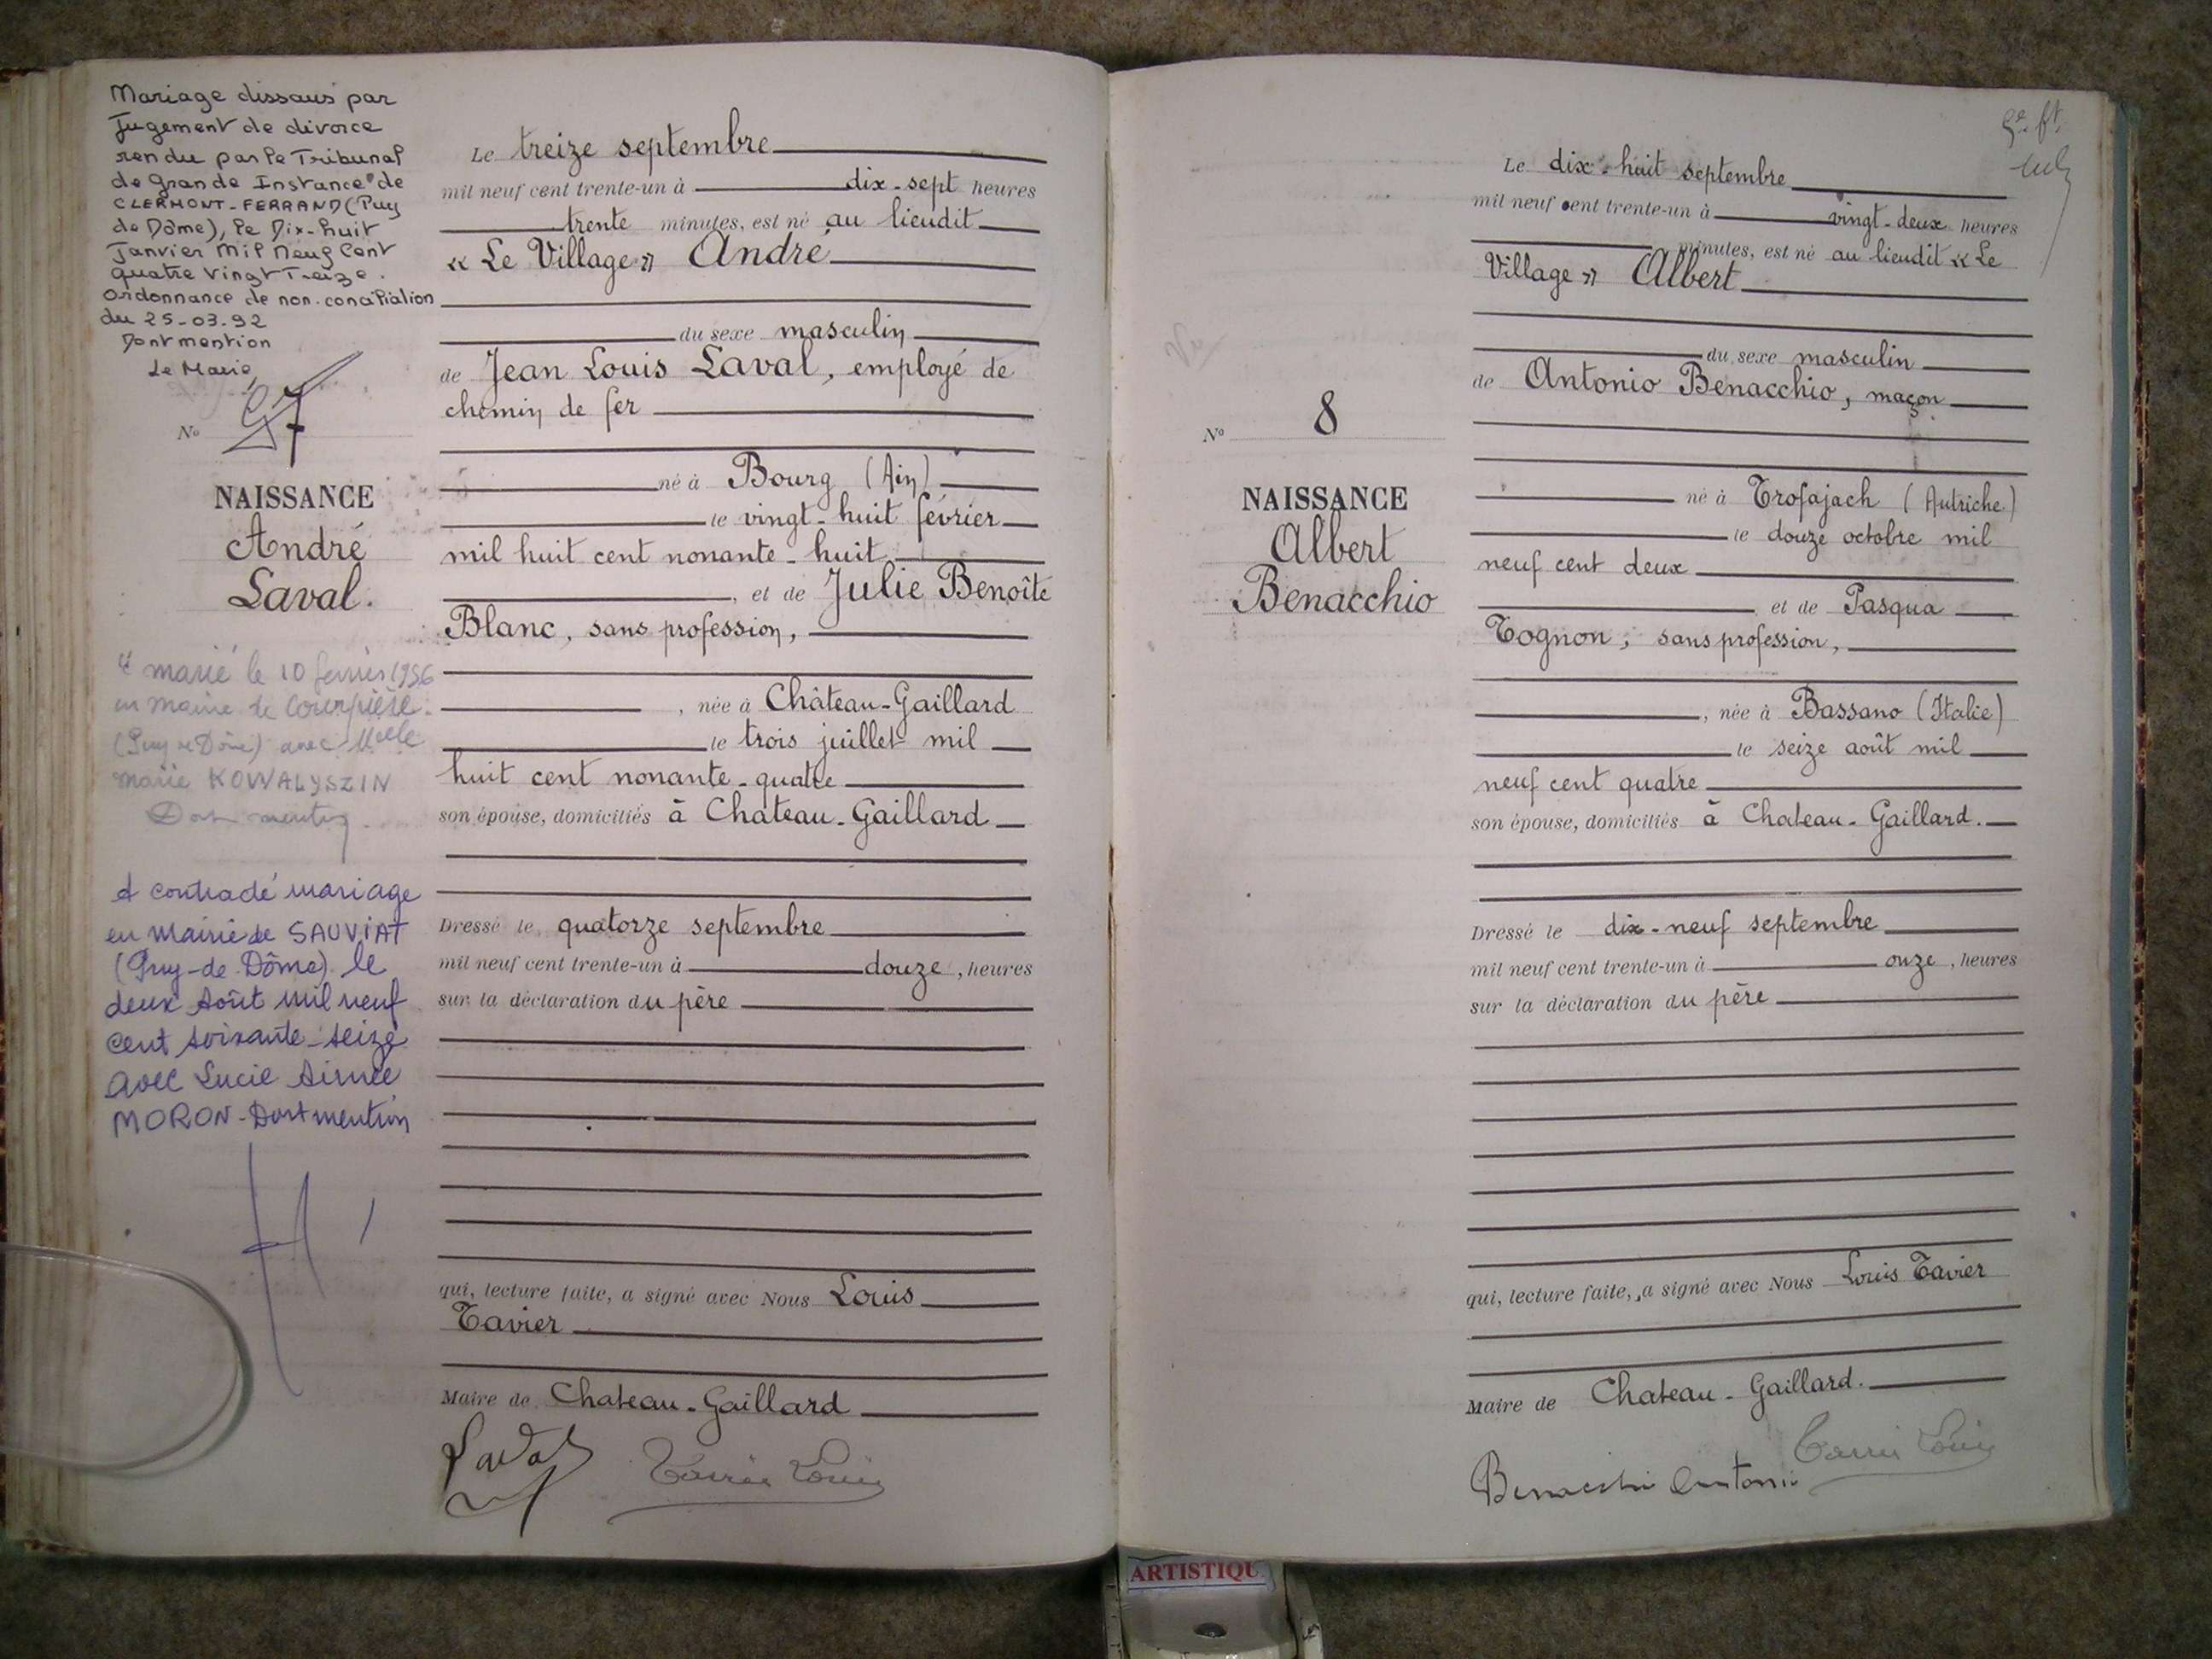 Mariage dissous par
Jugement de divorce
rendu par le Tribunal
de Grande Instance de
CLERMONT-FERRAND (Puy
de Dôme), le Dix-huit
Janvier Mil Neuf Cent
quatre Vingt Treize.
Ordonnance de non-conciliation
du 25-03-92
Dont mention
Le Maire
N° 7
NAISSANCE
André
Laval.
marié le 10 février 1956
en mairie de Courpière
(Puy de Dôme) avec Melle
Marie KOWALYSZIN
Dont mention
A contracté mariage
en Mairie de SAUVIAT
(Puy-de-Dôme) le
deux Août mil neuf
cent soixante-seize
avec Lucie Aimée
MORON - Dont mention
Le treize septembre
mil neuf cent trente-un à dix-sept heures
trente minutes, est né au lieudit
« Le Village » André
du sexe masculin
de Jean Louis Laval, employé de
chemin de fer
né à Bourg (Ain)
le vingt-huit février
mil huit cent nonante-huit
, et de Julie Benoîte
Blanc, sans profession,
, née à Château-Gaillard
le trois juillet mil
huit cent nonante-quatre
son épouse, domiciliés à Chateau-Gaillard
Dressé le quatorze septembre
mil neuf cent trente-un à douze, heures
sur la déclaration du père
qui, lecture faite, a signé avec Nous Louis
Tavier
Maire de Chateau-Gaillard
Laval Tavier Louis
N° 8
NAISSANCE
Albert
Benacchio
Le dix-huit septembre
mil neuf cent trente-un à vingt-deux heures
minutes, est né au lieudit « Le
Village » Albert
du sexe masculin
de Antonio Benacchio, maçon
né à Trofajach (Autriche)
le douze octobre mil
neuf cent deux
et de Pasqua
Tognon, sans profession,
, née à Bassano (Italie)
le seize août mil
neuf cent quatre
son épouse, domiciliés à Chateau-Gaillard.
Dressé le dix-neuf septembre
mil neuf cent trente-un à onze, heures
sur la déclaration du père
qui, lecture faite, a signé avec Nous Louis Tavier
Maire de Chateau-Gaillard.
Tavier Louis
Benacchio Antonio
ARTISTIQU